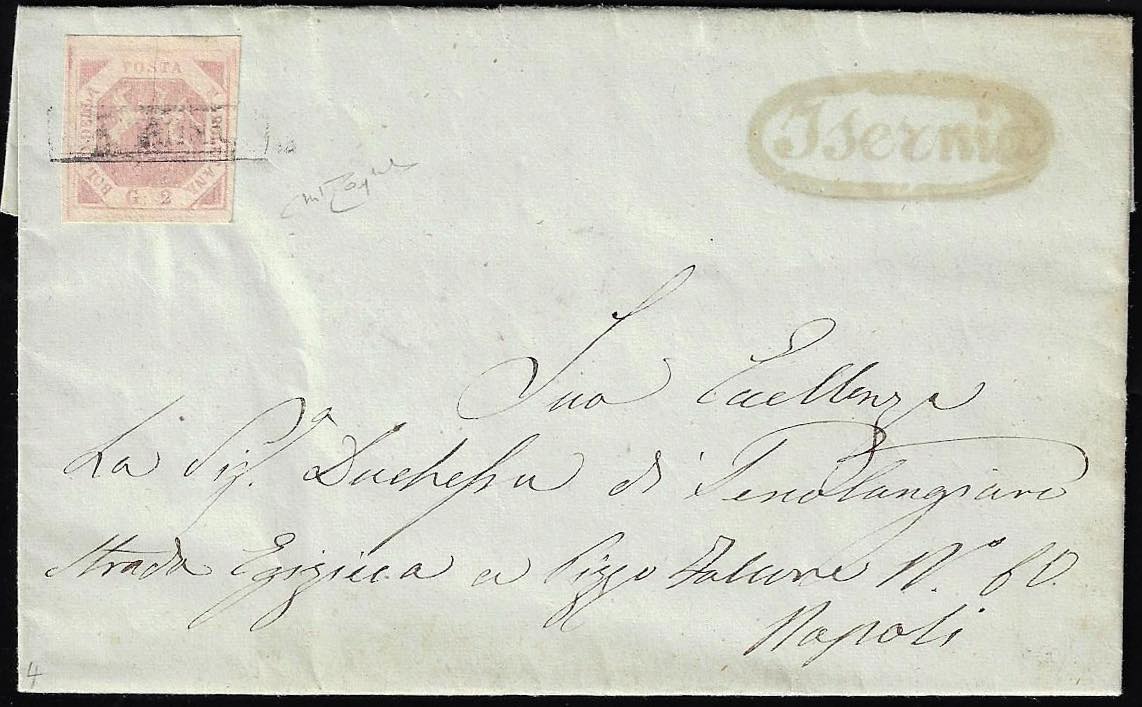 POSTA
NAPOLETANA
BOLLO DELLA
G. 2
Isernia
Sua Eccellenza
La Sig.ª Duchessa di
Strada Egiziaca a Pizzo Falcone N.º 60.
Napoli
4